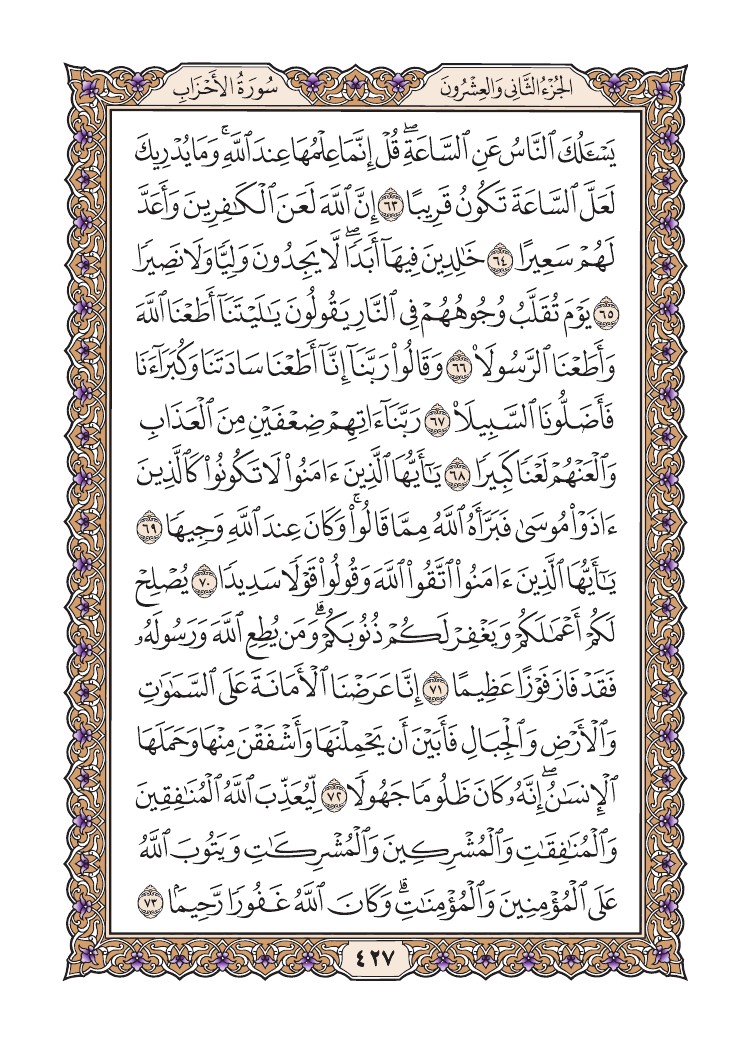 الجُزْءُ الثَّانِي وَالعِشْرُونَ
سُورَةُ الأَحْزَابِ
يَسْـَٔلُكَ ٱلنَّاسُ عَنِ ٱلسَّاعَةِۖ قُلْ إِنَّمَا عِلْمُهَا عِندَ ٱللَّهِۚ وَمَا يُدْرِيكَ
لَعَلَّ ٱلسَّاعَةَ تَكُونُ قَرِيبًا ٦٣ إِنَّ ٱللَّهَ لَعَنَ ٱلْكَٰفِرِينَ وَأَعَدَّ
لَهُمْ سَعِيرًا ٦٤ خَٰلِدِينَ فِيهَآ أَبَدًاۖ لَّا يَجِدُونَ وَلِيًّا وَلَا نَصِيرًا
٦٥ يَوْمَ تُقَلَّبُ وُجُوهُهُمْ فِى ٱلنَّارِ يَقُولُونَ يَٰلَيْتَنَآ أَطَعْنَا ٱللَّهَ
وَأَطَعْنَا ٱلرَّسُولَا۠ ٦٦ وَقَالُوا۟ رَبَّنَآ إِنَّآ أَطَعْنَا سَادَتَنَا وَكُبَرَآءَنَا
فَأَضَلُّونَا ٱلسَّبِيلَا۠ ٦٧ رَبَّنَآ ءَاتِهِمْ ضِعْفَيْنِ مِنَ ٱلْعَذَابِ
وَٱلْعَنْهُمْ لَعْنًا كَبِيرًا ٦٨ يَٰٓأَيُّهَا ٱلَّذِينَ ءَامَنُوا۟ لَا تَكُونُوا۟ كَٱلَّذِينَ
ءَاذَوْا۟ مُوسَىٰ فَبَرَّأَهُ ٱللَّهُ مِمَّا قَالُوا۟ۚ وَكَانَ عِندَ ٱللَّهِ وَجِيهًا ٦٩
يَٰٓأَيُّهَا ٱلَّذِينَ ءَامَنُوا۟ ٱتَّقُوا۟ ٱللَّهَ وَقُولُوا۟ قَوْلًا سَدِيدًا ٧٠ يُصْلِحْ
لَكُمْ أَعْمَٰلَكُمْ وَيَغْفِرْ لَكُمْ ذُنُوبَكُمْۗ وَمَن يُطِعِ ٱللَّهَ وَرَسُولَهُۥ
فَقَدْ فَازَ فَوْزًا عَظِيمًا ٧١ إِنَّا عَرَضْنَا ٱلْأَمَانَةَ عَلَى ٱلسَّمَٰوَٰتِ
وَٱلْأَرْضِ وَٱلْجِبَالِ فَأَبَيْنَ أَن يَحْمِلْنَهَا وَأَشْفَقْنَ مِنْهَا وَحَمَلَهَا
ٱلْإِنسَٰنُۖ إِنَّهُۥ كَانَ ظَلُومًا جَهُولًا ٧٢ لِّيُعَذِّبَ ٱللَّهُ ٱلْمُنَٰفِقِينَ
وَٱلْمُنَٰفِقَٰتِ وَٱلْمُشْرِكِينَ وَٱلْمُشْرِكَٰتِ وَيَتُوبَ ٱللَّهُ
عَلَى ٱلْمُؤْمِنِينَ وَٱلْمُؤْمِنَٰتِۗ وَكَانَ ٱللَّهُ غَفُورًا رَّحِيمًۢا ٧٣
٤٢٧